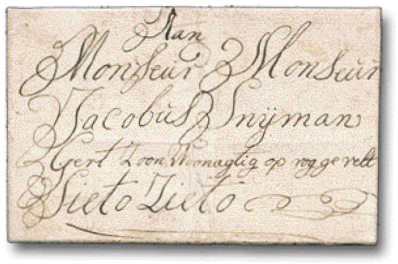 Aan
Monsieur Monsieur
Jacobus Snÿman
Gert Zoon Woonagtig op roggevelt
Sieto Zieto